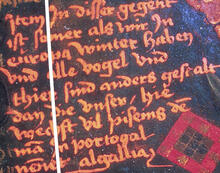 item In disser gegent
ist somer als wir In
europa winter haben
Vnd alle vogel vnd
thier sind anders gestalt
dan die vnser, hie
wechst vil piseins de
man In portogal
nenet algallia